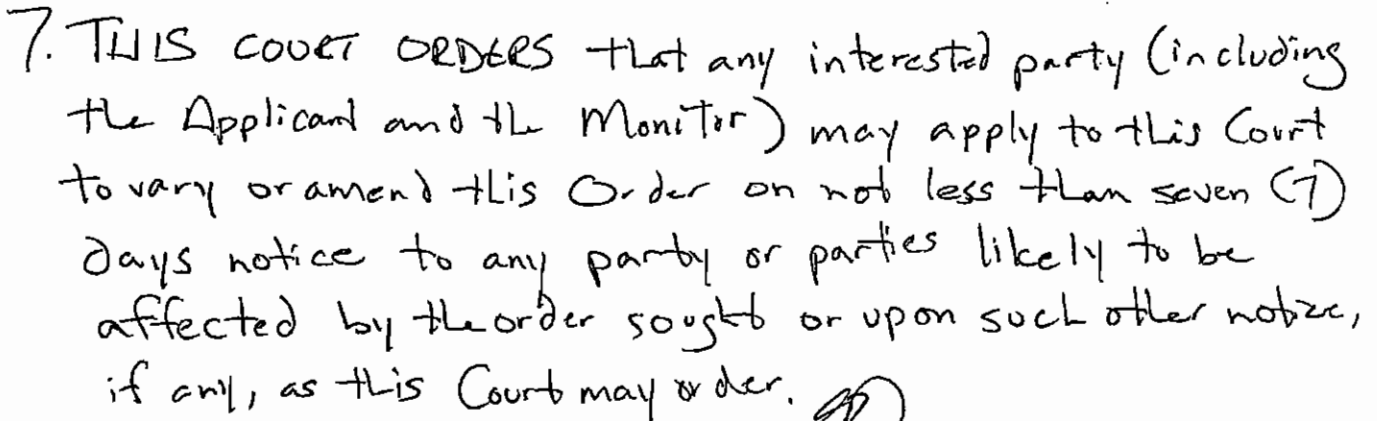 7. THIS COURT ORDERS that any interested party (including
the Applicant and the Monitor) may apply to this Court
to vary or amend this Order on not less than seven (7)
days notice to any party or parties likely to be
affected by the order sought or upon such other notice,
if any, as this Court may order.